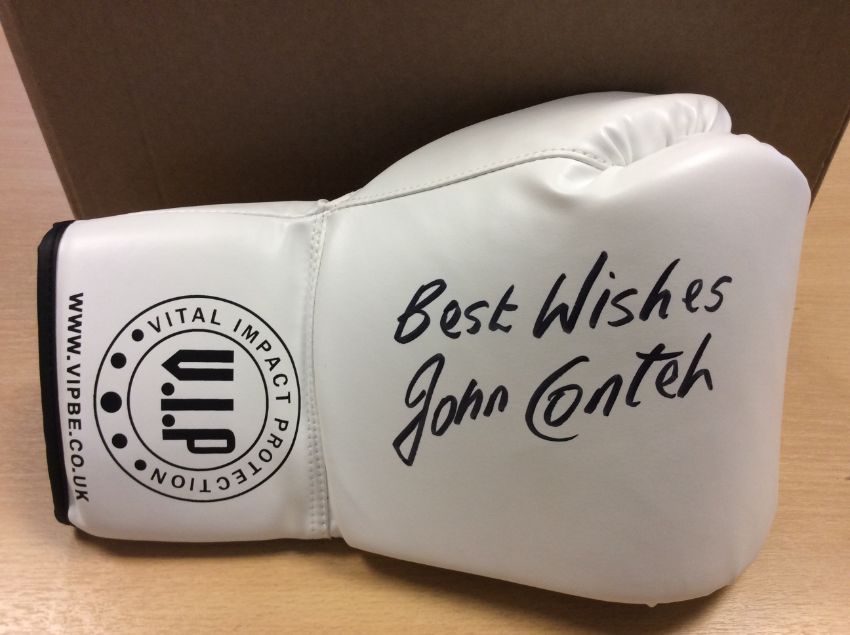 Best Wishes
John Conteh
VITAL IMPACT PROTECTION
V.I.P
WWW.VIPBE.CO.UK